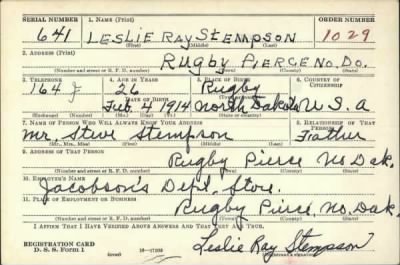 SERIAL NUMBER 1. NAME (Print) ORDER NUMBER
641 LESLIE RAY STEMPSON 1029
(First) (Middle) (Last)
2. ADDRESS (Print)
RUGBY PIERCE NO. DO.
(Number and street or R. F. D. number) (Town) (County) (State)
3. TELEPHONE 4. AGE IN YEARS 5. PLACE OF BIRTH 6. COUNTRY OF CITIZENSHIP
164 J 26 Rugby
DATE OF BIRTH
Feb 4 1914 North Dakota U.S.A
7. NAME OF PERSON WHO WILL ALWAYS KNOW YOUR ADDRESS 8. RELATIONSHIP OF THAT PERSON
Mr. Steve Stempson Father
(Mr., Mrs., Miss) (First) (Middle) (Last)
9. ADDRESS OF THAT PERSON
Rugby Pierce No Dak.
(Number and street or R. F. D. number) (Town) (County) (State)
10. EMPLOYER'S NAME
Jacobson's Dept. Store.
11. PLACE OF EMPLOYMENT OR BUSINESS
Rugby Pierce, No. Dak.
(Number and street or R. F. D. number) (Town) (County) (State)
I AFFIRM THAT I HAVE VERIFIED ABOVE ANSWERS AND THAT THEY ARE TRUE.
REGISTRATION CARD
D. S. S. Form 1 Leslie Ray Stempson